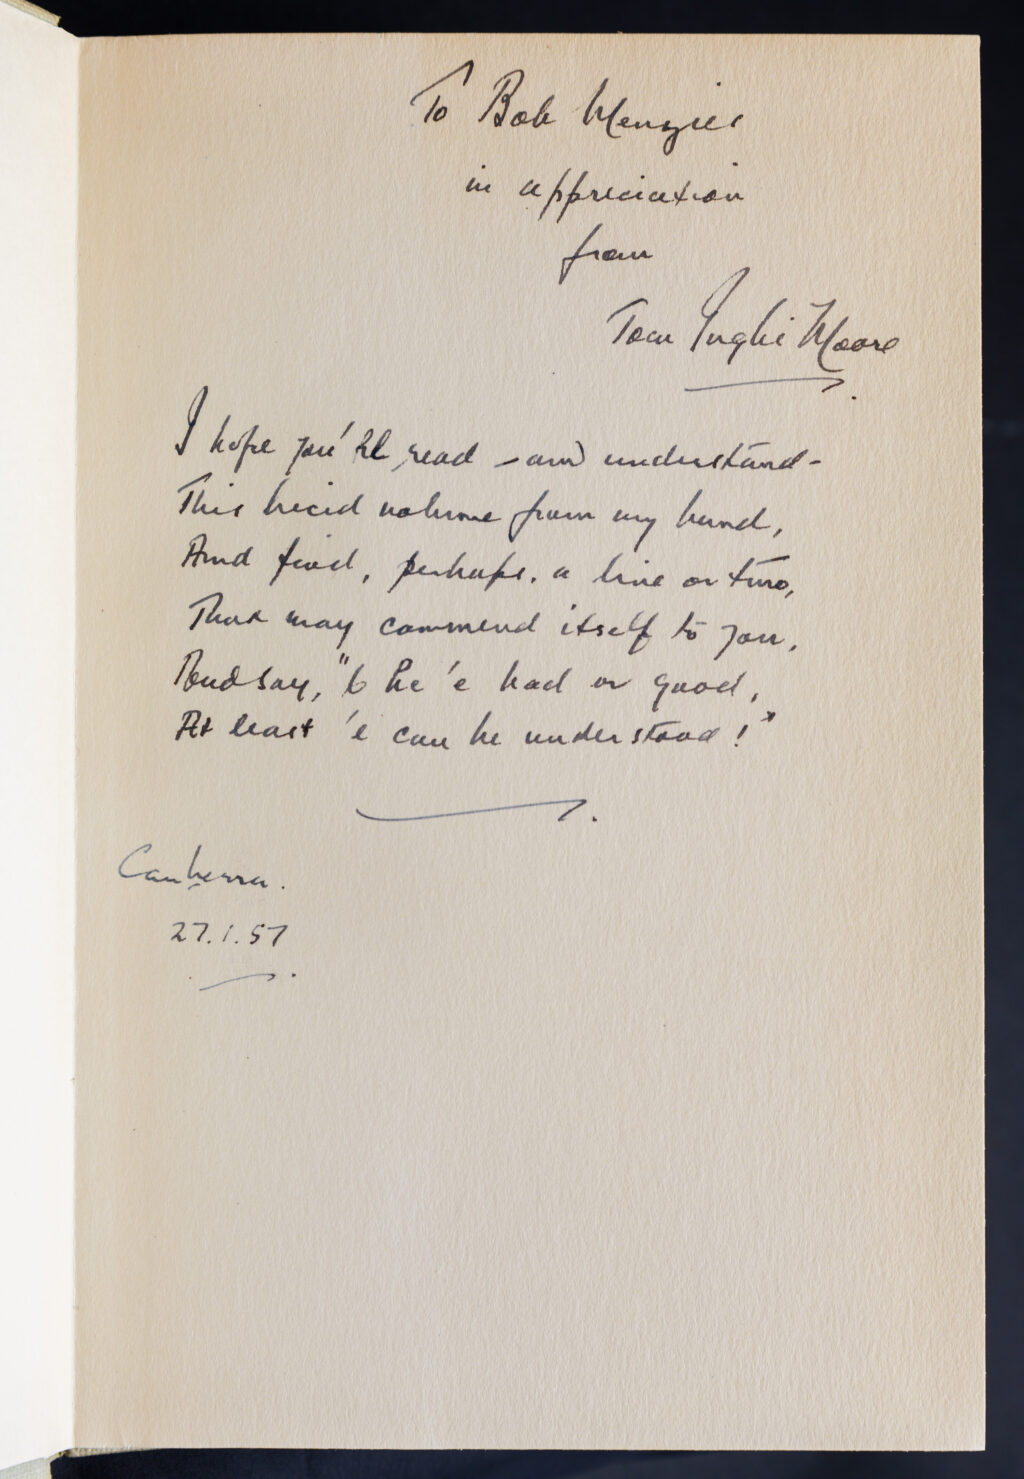 To Bob Menzies
in appreciation
from
Tom Inglis Moore
I hope you'll read – and understand –
This lucid volume from my hand,
And find, perhaps, a line or two,
That may commend itself to you,
And say, " he 'e bad or good,
At least 'e can be understood!"
Canberra.
27.1.57